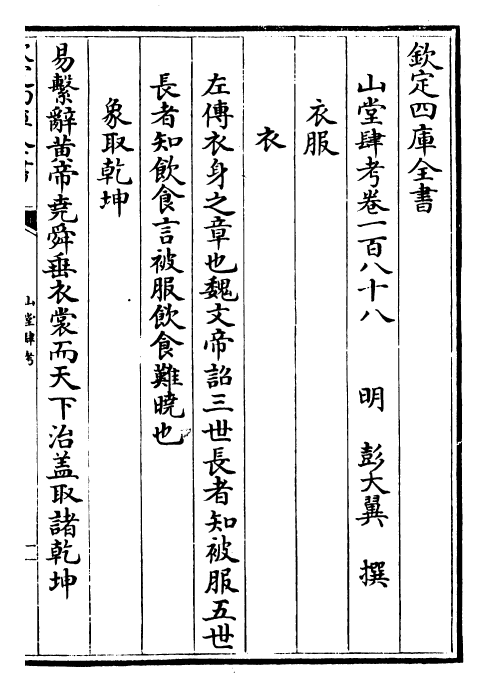 欽定四庫全書
山堂肆考卷一百八十八　明　彭大翼　撰
衣服
衣
左傳衣身之章也魏文帝詔三世長者知被服五世
長者知飲食言被服飲食難曉也
象取乾坤
易繫辭黄帝堯舜垂衣裳而天下治蓋取諸乾坤
山堂肆考